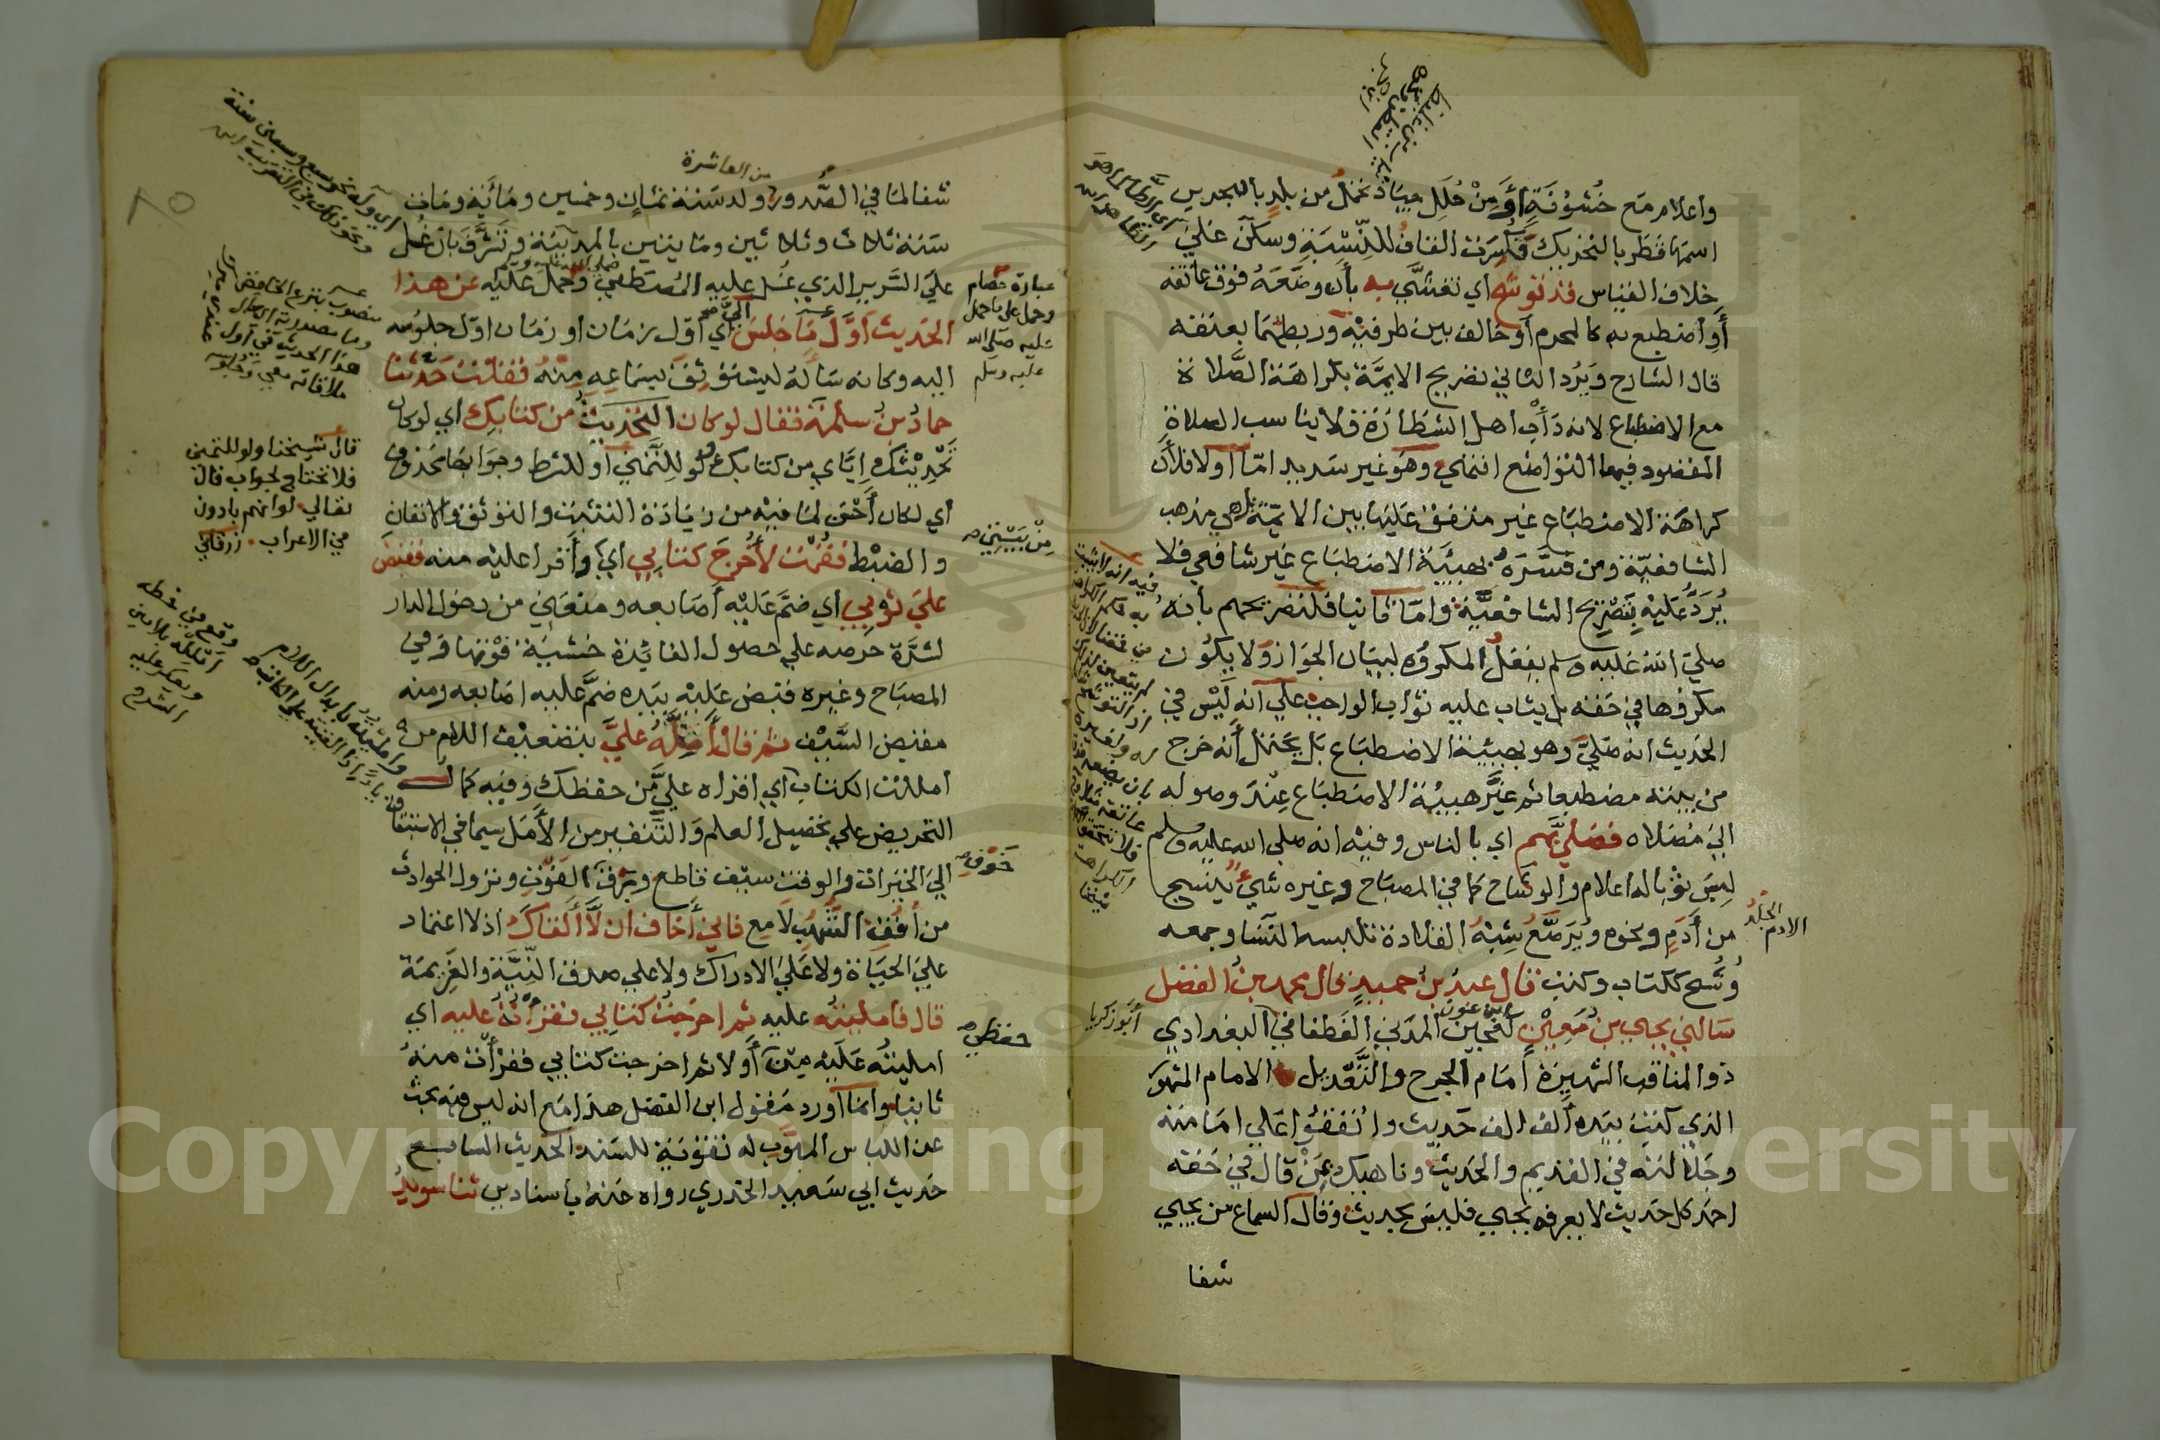 واعلام مع خُشُونَةٍ أوَ مِنْ حُلَلٍ جيَاد تحملُ من بلدٍ بالبحرين
اسمها قَطَر بالتحريك فكُسِرَت القافُ للنِّسْبَةِ وسكن عَلي
خِلاف القياس قد توشح اي تغشَّي به بأن وضَعَهُ فوق عاتقه
أو اضطبع به كالمحرم أو خالف بين طرفيْه وربطهُمَا بعنقه
قال الشارح وَيَرُد الثاني تصريح الايمَّة بكراهَة الصَّلاة
مع الاضطباع لانه دَأب اهل الشطارَة فلا يناسب الصلاة
المقصود فيها التواضع انتهي وهو غير سَديد امّا أولا فلأن
كراهَة الاضطبَاع غير متفق عليهَا بين الايمّة بل هي مذهب
الشافعيّة ومن فسَّرَهُ بهيئَة الاضطبَاع غير شافعي فلا
يُرَدُّ عليهِ بتصْرِيح الشافعيَّة وامّا ثانيا فلتصريحهم بأنه
صلي الله عَليه وسلم يفعلُ المكروُه لبيَان الجوَاز ولا يكوُن
مكروهَا في حَقه بل يثاب عليه ثوَاب الواجب علي أنه لَيْس في
الحَديث انه صَليَّ وهو بهيئة الاضطبَاع بَل يحتمل أنه خرج
من بيته مضطبعا ثم غيَّر هيئة الاضطبَاع عِنْد وصوله
اليَ مُصَلاه فصَليَّ بهم اي بالناس وفيْه انه صلي الله عليه وسلم
لبِسَ ثوْبا له اعلام والوشَاح كما في المصبَاح وغيره شيْءٌ يُنسَج
من أدَم ونحوه وَيُرَصَّعُ شِبْهُ القلادة تلبسه النِسَا وجمعه
وُشُح ككتاب وكتب قال عبد بن حميدٍ قال محمد بنُ الفضل
سَالني يحيي بن مَعِيْن المدَني الغَطفاني البغدادي
ابن عَون
أبوُ زكريا
ذو المناقب الشهيرَة أمَام الجرح والتعَّديل الامام المشهوَر
الذي كَتَبَ بيَده ألف الف حَديث واتُفقُوا عَلي امَامته
وجَلالَته في القديم والحَديث وناهيكَ بمَنْ قال في حَقه
احمد كل حَديث لا يعرفه يحيي فليسَ بحديث وقال السماع من يحيي
شفا
الجلد
الادم
من العاشرة
شفا لما في الصُّدور ولد سَنة ثمان وخمسين ومَائَة ومَات
سَنة ثلاث وثلاثين ومايتين بالمدينة وتشرَّفَ بان غُسل
عليَ السَّرير الذي غسل عليه المُصطفي وحُمل عليه عَن هذا
صلي الله عليه وسلم
الحَديث أوَّلَ مَا جَلسَ اي أوّل زمَان او زمَان اوّل جلوُسه
اليَّ
اليه وكانه سَألهُ ليسْتَوثقَ بسَمَاعِهِ مِنْهُ فقلت حَدثنا
حماد بن سلَمَة فقال لو كان التحديث من كتابك اي لو كان
تحْدِيثك إيَّاي من كتابك ولو للتَّمني أو للشرط وجوَابهَا محذوف
اي لكان أحْسَن لمَا فيْه من زيَادَة التثبّت والتوثق والاتقان
والضبْط فقُمْتُ لأُخرجَ كتابي اي وأقرا عليْه منه فقبَض
عليَ ثوبي اي ضمَّ عَليْه أصَابعه ومنعَني من دخول الدار
لشدَّة حرصه علي حصول الفائِدة خشيَةَ فوْتهَا وفي
المصبَاح وغيره قبَض عَليْه بيَده ضمَّ عليه اصَابعه ومنه
مقبض السَّيْف ثم قال أَمِلَّهُ عليَّ بتضعيْف اللام من
امللتُ الكتاب أي اقراه عليَّ من حفظك وفيه كمال
التحريض علي تحْصيل العلم والتَّنفير من الأمَل سيما في الاستباق
اليَ الخيَرات والوقت سيْف قاطع وبَرْق الفَوْتِ ونزول الحوادث
من أفُق الشهُب لامع فاني أخاف ان لَّا ألقاك اذ لا اعتماد
عليَ الحيَاة ولا عَليَ الادراك ولا علي صدق النِّيَّة والعَزيمَة
قال فأمليتُه عليه ثم اخرجتُ كتابي فقرأتُهُ عليه اي
امليتُه عَليْه مِن أوَّلا ثم اخرجت كتابي فقرأت منهُ
ثانيا وانما أورد مَقول ابن الفضل هذا مَع انه ليس فيه بحث
عن اللباس المبوَّب له تقْويَةً للسَنَد الحَديث السابع
حَديث ابي سَعيد الخدري رواه عَنه باسنادين ثنا سويدُ
عبارة عصام
وحمل علي ما حمل
عليه صلي الله
عليه وسلم
مِنْ بَيْتي
خوْف
حفظي
قال شيخنا ولو للتمني
فلا تحتاج لجواب قال
تعالي لو انهم بادون
في الاعراب. زرقاني
منصوب بنزع الخافض
وما مصدرية
هذا الحديث في أول
ملاقاته
وقع في خطه
أمْلِلْهُ بلامين
٨٥